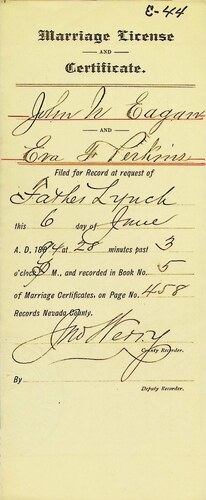 E-44
Marriage License
AND
Certificate.
John W Eagan
AND
Eva F Perkins
Filed for Record at request of
Father Lynch
this 6 day of June
A. D. 1894 at 28 minutes past 3
o'clock P M., and recorded in Book No. 5
of Marriage Certificates, on Page No. 458
Records Nevada County.
Jno Werry
County Recorder.
By
Deputy Recorder.